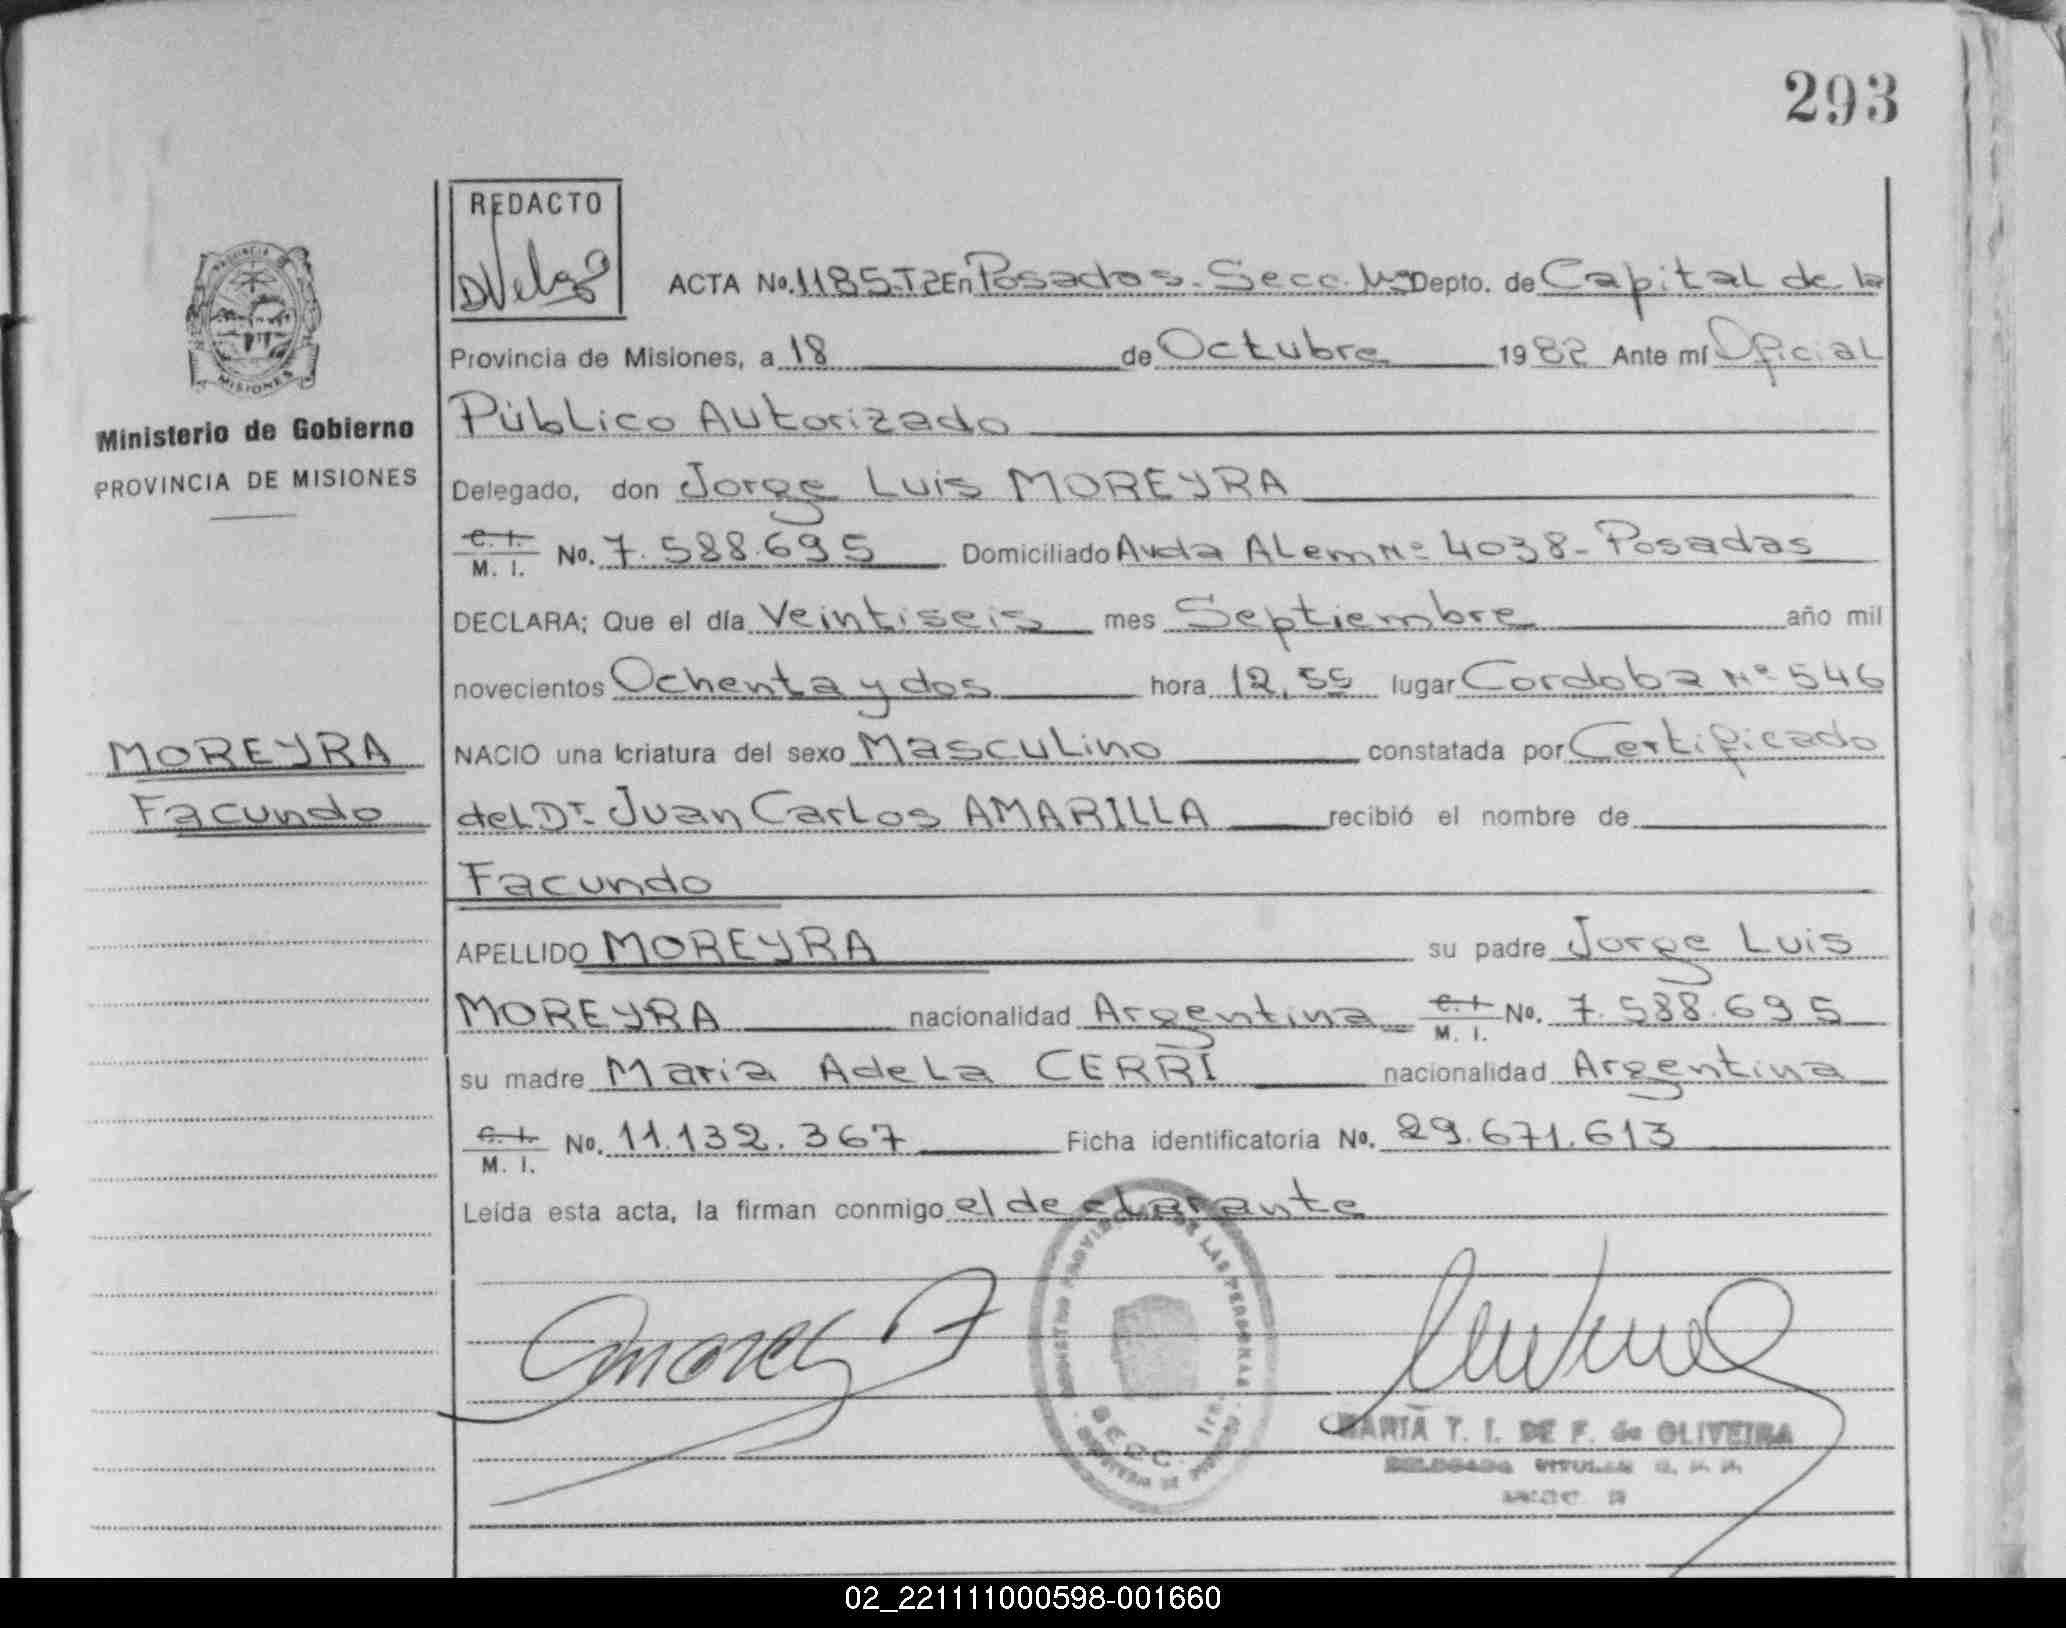 293
REDACTO
ACTA No. 1185.T2 En Posadas. Secc. Depto. de Capital de la
PROVINCIA DE
MISIONES
Provincia de Misiones, a 18 de Octubre 1982 Ante mí Oficial
Público Autorizado
Ministerio de Gobierno
PROVINCIA DE MISIONES
Delegado, don Jorge Luis MOREYRA
C. I.
M. I. No. 7.588.695 Domiciliado Avda ALem Nº 4038 - Posadas
DECLARA; Que el día Veintiseis mes Septiembre año mil
novecientos Ochenta y dos hora 12,55 lugar Cordoba Nº 546
MOREYRA
Facundo
NACIO una criatura del sexo Masculino constatada por Certificado
del Dr. Juan Carlos AMARILLA recibió el nombre de
Facundo
APELLIDO MOREYRA su padre Jorge Luis
MOREYRA nacionalidad Argentina C. I. M. I. No. 7.588.695
su madre Maria Adela CERRI nacionalidad Argentina
C. I.
M. I. No. 11.132.367 Ficha identificatoria No. 29.671.613
Leída esta acta, la firman conmigo el declarante
DE LAS PERSONAS
SECC. 1ra.
MARIA T. I. DE F. de OLIVEIRA
DELEGADA TITULAR
02_221111000598-001660